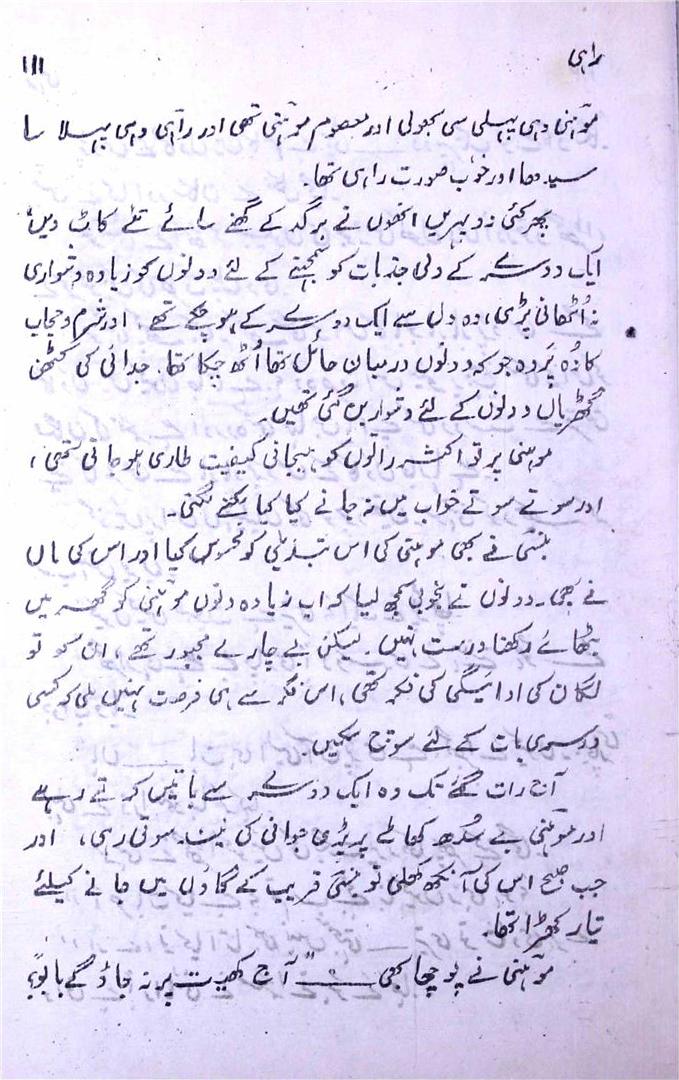 راہی ۱۱۱
موہنی وہی پہلی سی بھولی اور معصوم موہنی تھی اور راہی وہی پہلا سا
سیدھا اور خوب صورت راہی تھا۔
پھر کئی دوپہریں انھوں نے برگد کے گھنے سائے تلے کاٹ دیں،
ایک دوسرے کے دلی جذبات کو سمجھنے کے لئے دونوں کو زیادہ دشواری
نہ اُٹھانی پڑی، وہ دل سے ایک دوسرے کے ہو چکے تھے۔ اور شرم و حجاب
کا وُہ پَردہ جو کہ دونوں درمیان حائل تھا اُٹھ چکا تھا۔ جدائی کی کٹھن
گھڑیاں دونوں کے لئے دشوار بن گئی تھیں۔
موہنی پر تو اکثر راتوں کو ہیجانی کیفیت طاری ہو جاتی تھی،
اور سوتے سوتے خواب میں نہ جانے کیا کیا بکنے لگتی۔
بنسی نے بھی موہنی کی اس تبدیلی کو محسوس کیا اور اس کی ماں
نے بھی۔ دونوں نے بخوبی سمجھ لیا کہ اب زیادہ دنوں موہنی کو گھر میں
بٹھائے رکھنا درست نہیں۔ لیکن بے چارے مجبور تھے، ان کو تو
لگان کی ادائیگی کی فکر تھی، اس فکر سے ہی فرصت نہیں ملی کہ کسی
دوسری بات کے لئے سوچ سکیں۔
آج رات گئے تک وہ ایک دوسرے سے باتیں کرتے رہے
اور موہنی بے سُدھ کھاٹ پر پڑی جوانی کی نیند سوتی رہی، اور
جب صبح اس کی آنکھ کھلی تو بنسی قریب کے گاؤں میں جانے کیلئے
تیار کھڑا تھا۔
موہنی نے پوچھا بھی ــــــ "آج کھیت پر نہ جاؤ گے باپو؟